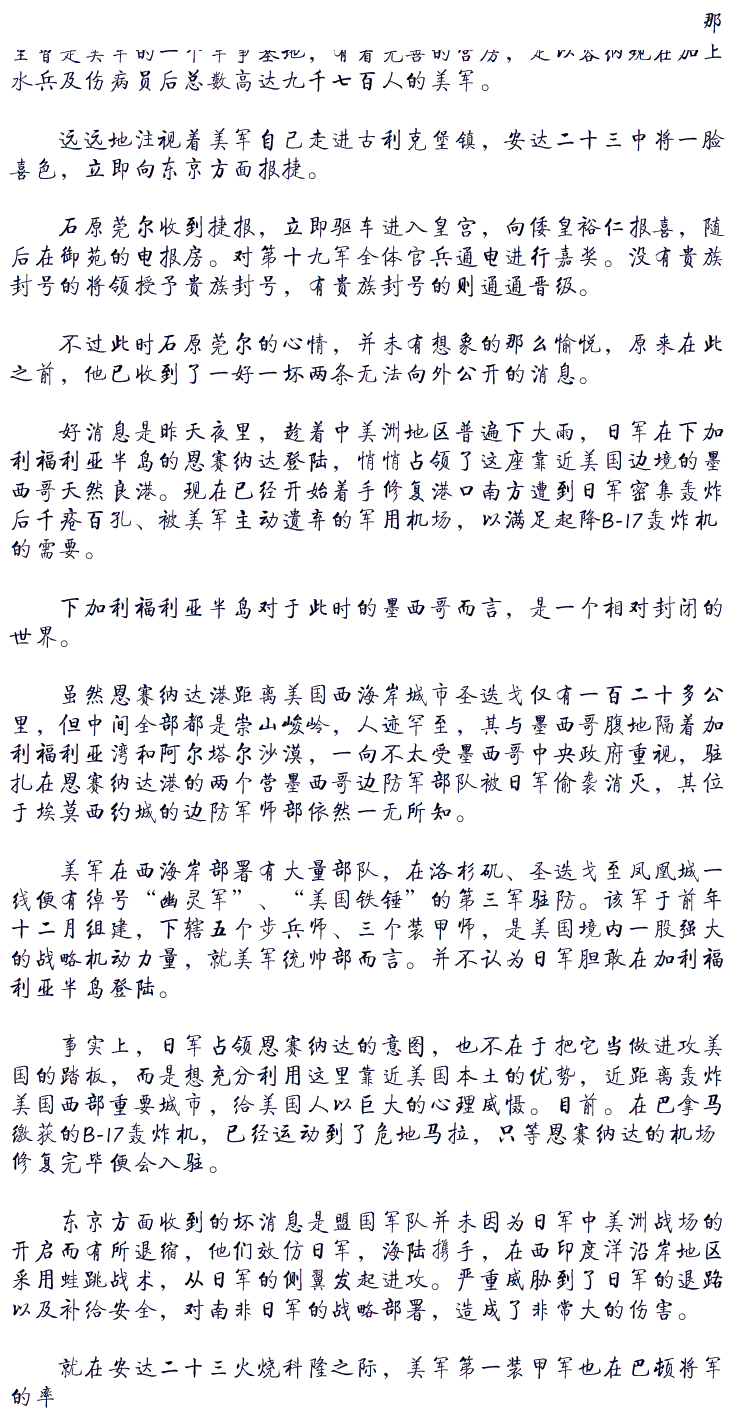 那
里曾是美军的一个军事基地，有着完善的营房，足以容纳现在加上
水兵及伤病员后总数高达九千七百人的美军。
远远地注视着美军自己走进古利克堡镇，安达二十三中将一脸
喜色，立即向东京方面报捷。
石原莞尔收到捷报，立即驱车进入皇宫，向倭皇裕仁报喜，随
后在御苑的电报房。对第十九军全体官兵通电进行嘉奖。没有贵族
封号的将领授予贵族封号，有贵族封号的则通通晋级。
不过此时石原莞尔的心情，并未有想象的那么愉悦，原来在此
之前，他已收到了一好一坏两条无法向外公开的消息。
好消息是昨天夜里，趁着中美洲地区普遍下大雨，日军在下加
利福利亚半岛的恩赛纳达登陆，悄悄占领了这座靠近美国边境的墨
西哥天然良港。现在已经开始着手修复港口南方遭到日军密集轰炸
后千疮百孔、被美军主动遗弃的军用机场，以满足起降B-17轰炸机
的需要。
下加利福利亚半岛对于此时的墨西哥而言，是一个相对封闭的
世界。
虽然恩赛纳达港距离美国西海岸城市圣迭戈仅有一百二十多公
里，但中间全部都是崇山峻岭，人迹罕至，其与墨西哥腹地隔着加
利福利亚湾和阿尔塔尔沙漠，一向不太受墨西哥中央政府重视，驻
扎在恩赛纳达港的两个营墨西哥边防军部队被日军偷袭消灭，其位
于埃莫西约城的边防军师部依然一无所知。
美军在西海岸部署有大量部队，在洛杉矶、圣迭戈至凤凰城一
线便有绰号“幽灵军”、“美国铁锤”的第三军驻防。该军于前年
十二月组建，下辖五个步兵师、三个装甲师，是美国境内一股强大
的战略机动力量，就美军统帅部而言。并不认为日军胆敢在加利福
利亚半岛登陆。
事实上，日军占领恩赛纳达的意图，也不在于把它当做进攻美
国的踏板，而是想充分利用这里靠近美国本土的优势，近距离轰炸
美国西部重要城市，给美国人以巨大的心理威慑。目前。在巴拿马
缴获的B-17轰炸机，已经运动到了危地马拉，只等恩赛纳达的机场
修复完毕便会入驻。
东京方面收到的坏消息是盟国军队并未因为日军中美洲战场的
开启而有所退缩，他们效仿日军，海陆携手，在西印度洋沿岸地区
采用蛙跳战术，从日军的侧翼发起进攻。严重威胁到了日军的退路
以及补给安全，对南非日军的战略部署，造成了非常大的伤害。
就在安达二十三火烧科隆之际，美军第一装甲军也在巴顿将军
的率